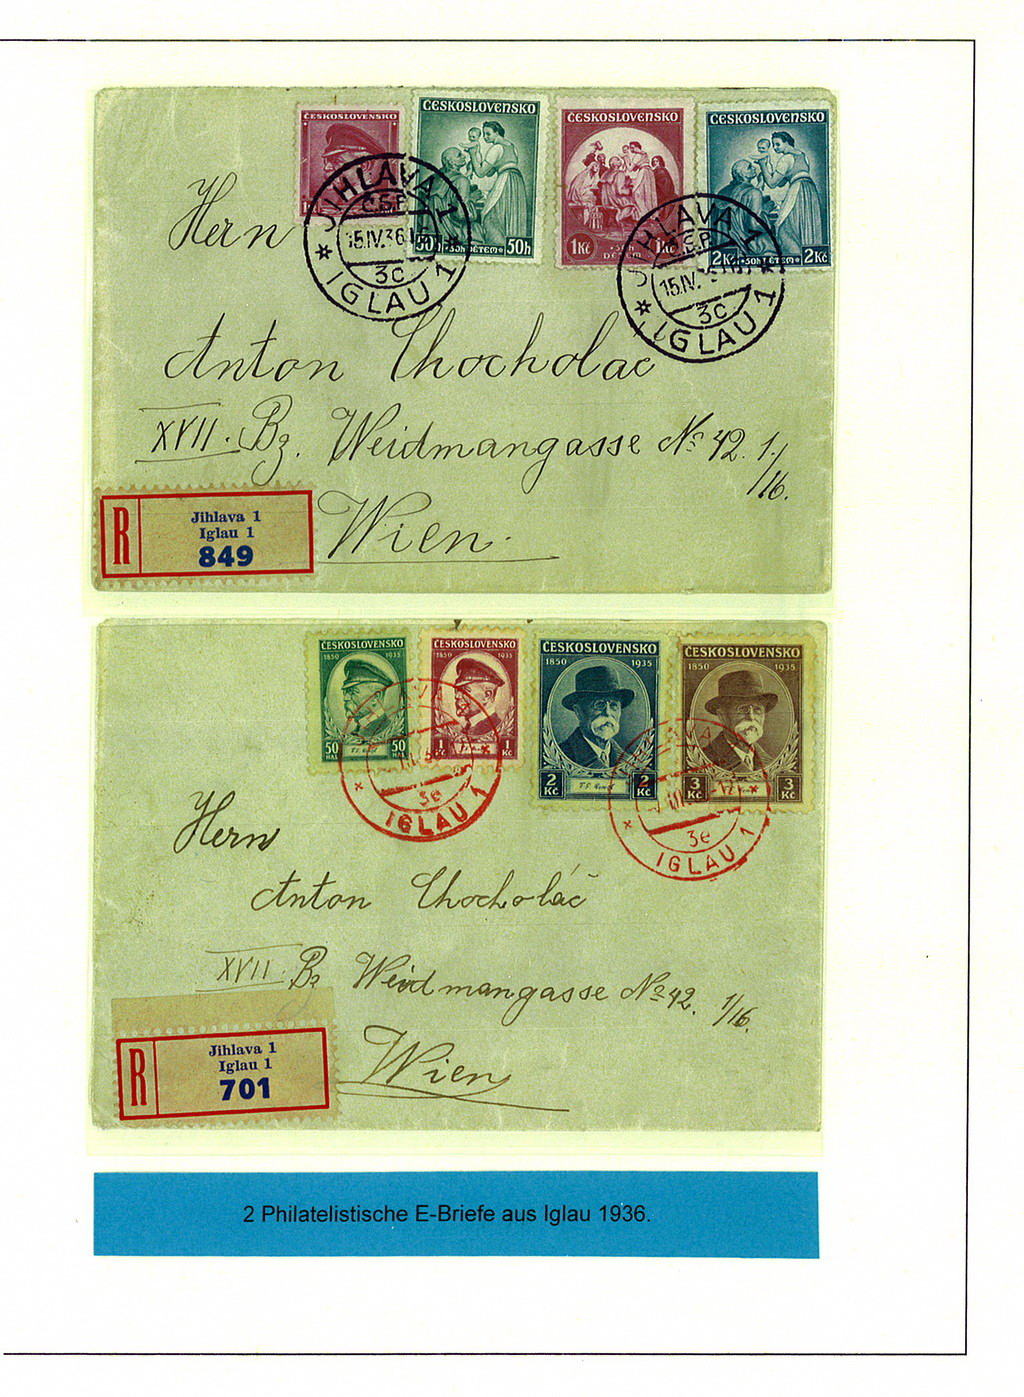 ČESKOSLOVENSKO
ČESKOSLOVENSKO
50h 50h
ČESKOSLOVENSKO
1Kč
DĚTEM
ČESKOSLOVENSKO
2Kč •50h DĚTEM• 2Kč
JIHLAVA 1
Č.S.P.
15.IV.36
3c
IGLAU 1
JIHLAVA 1
15.IV.
3c
IGLAU 1
Hern
Anton Chocholac
XVII. Bz. Weidmangasse No 42. 1./16.
Wien.
R
Jihlava 1
Iglau 1
849
ČESKOSLOVENSKO
1850 1935
50 HAL 50 HAL
ČESKOSLOVENSKO
1850 1935
1 Kč 1 Kč
ČESKOSLOVENSKO
1850 1935
2 Kč 2 Kč
ČESKOSLOVENSKO
1850 1935
3 Kč 3 Kč
3e
IGLAU 1
3e
IGLAU 1
Herrn
Anton Chocholáč
XVII. Bz Weidmangasse No 42. 1/16.
Wien
R
Jihlava 1
Iglau 1
701
2 Philatelistische E-Briefe aus Iglau 1936.